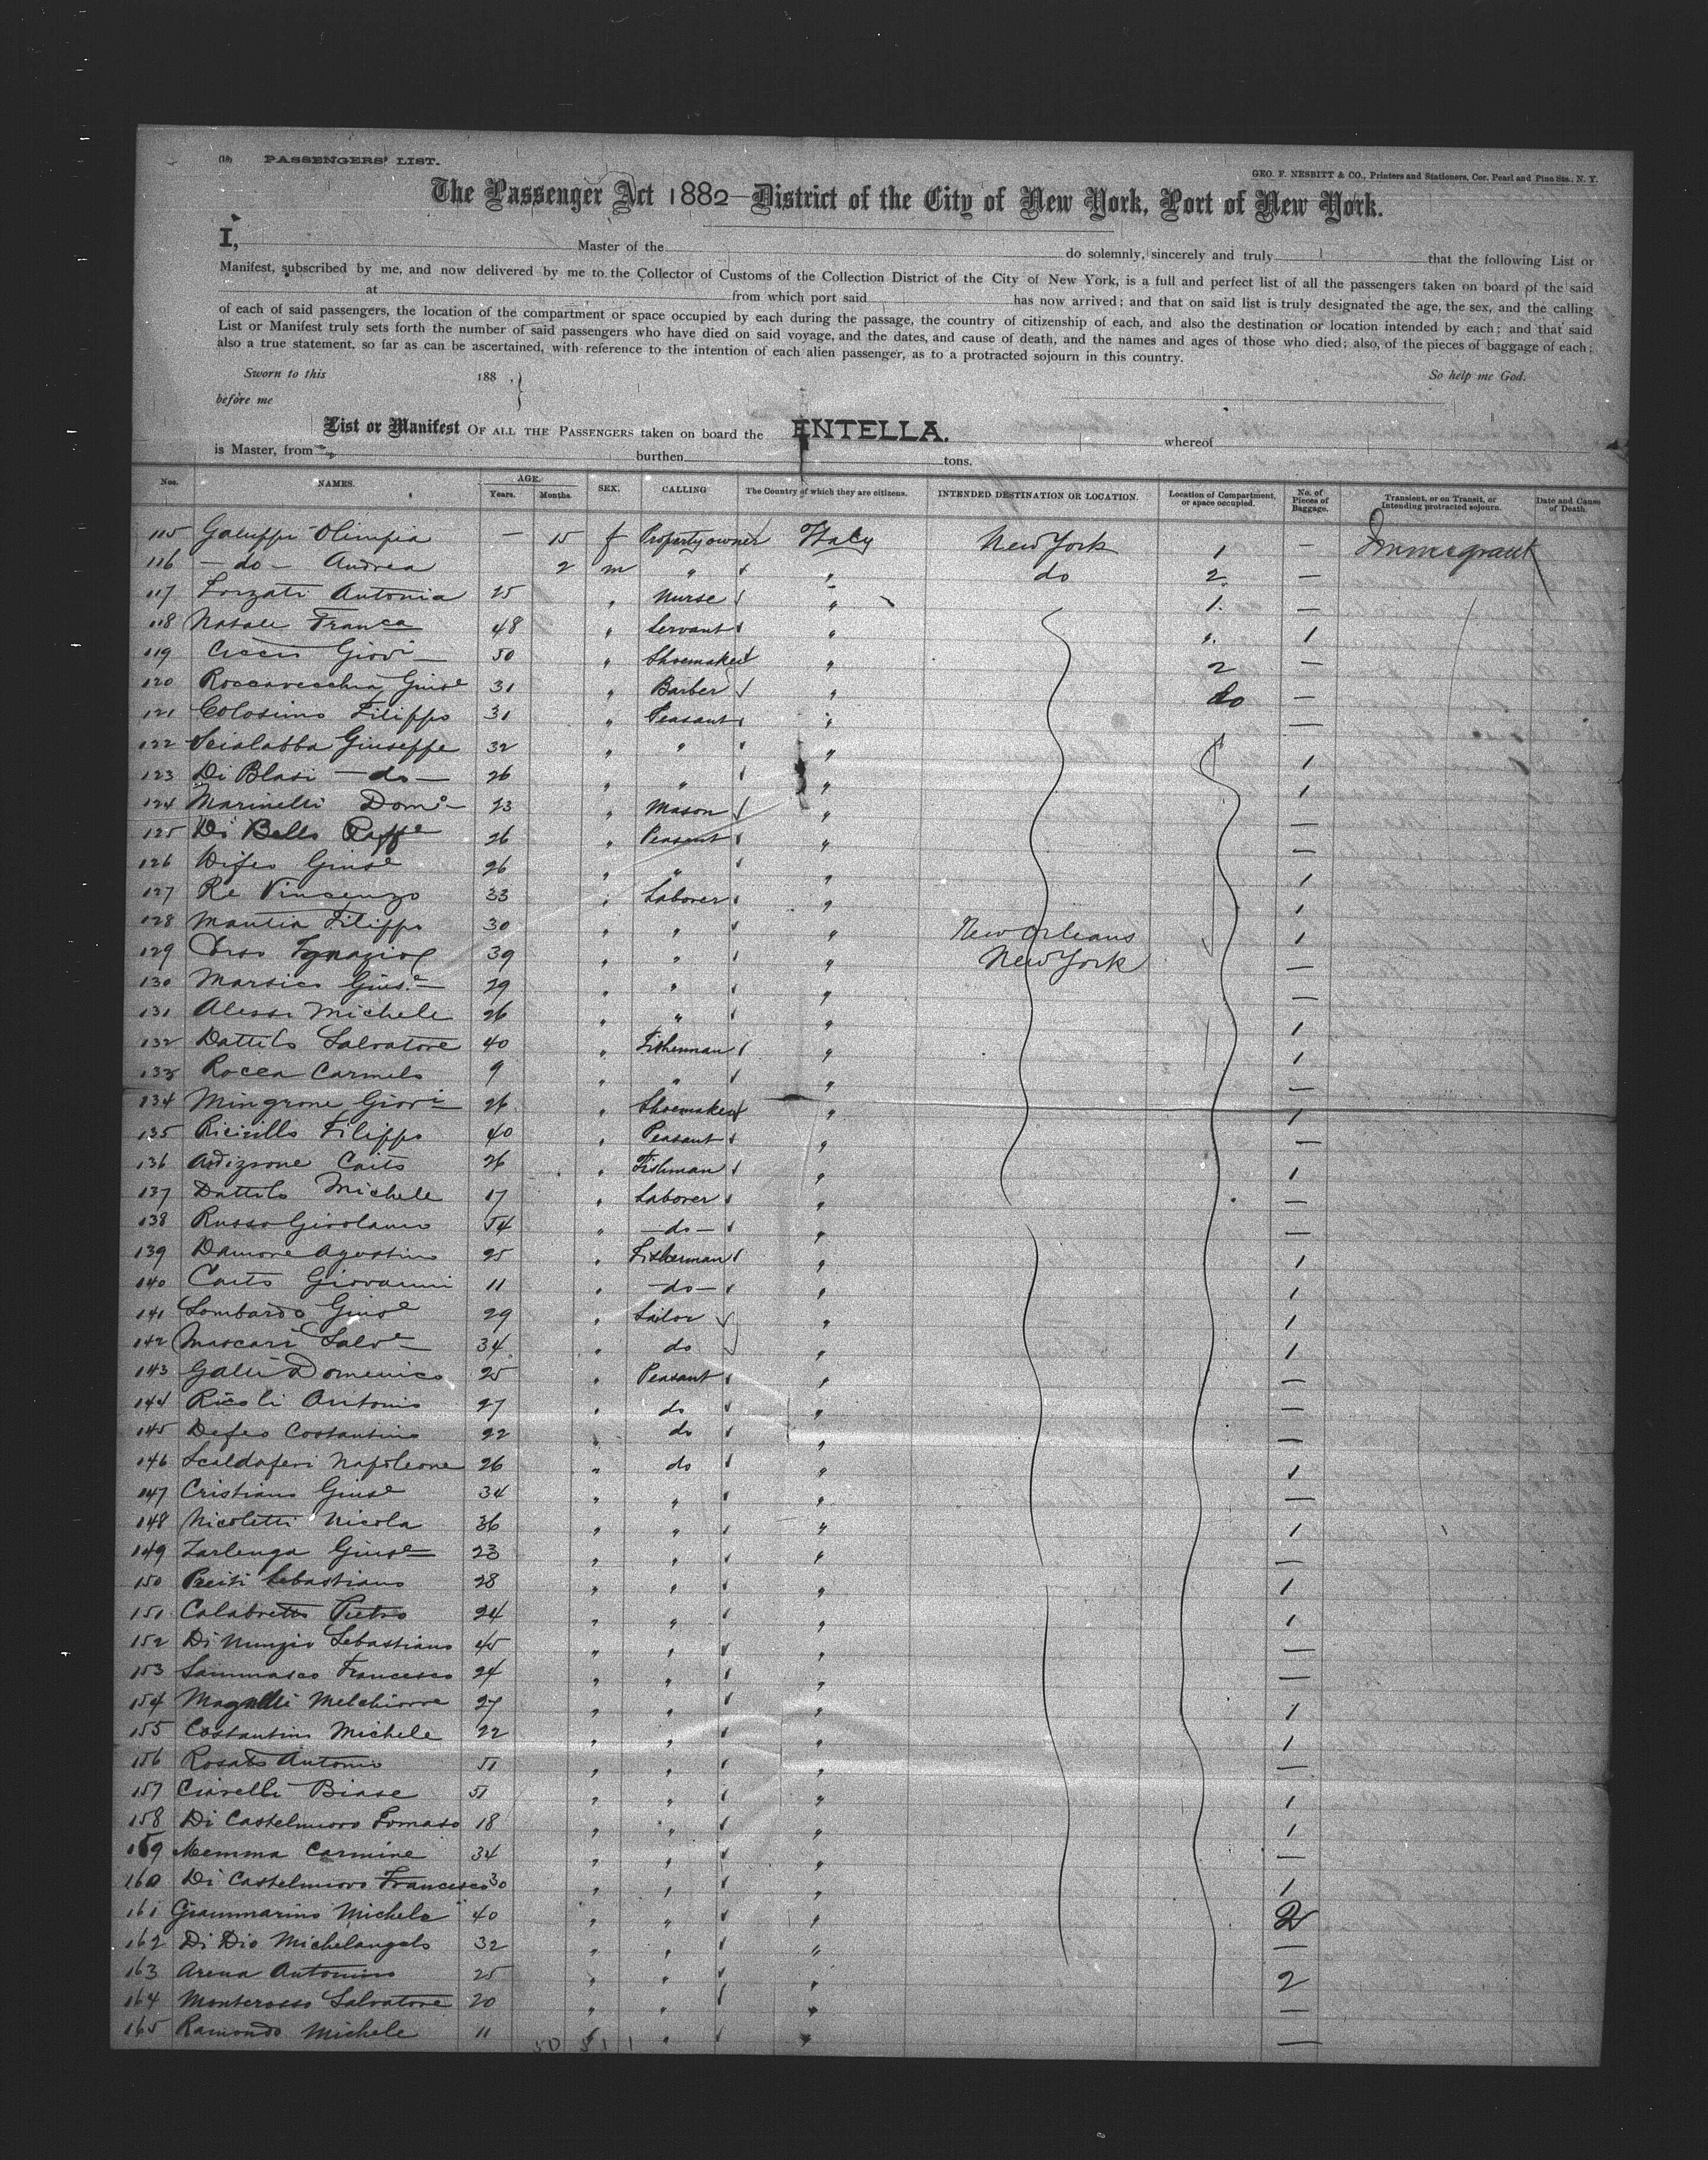 (18) PASSENGERS' LIST.
GEO. F. NESBITT & CO., Printers and Stationers, Cor. Pearl and Pine Sts., N. Y.
The Passenger Act 1882 District of the City of New York, Port of New York.
I, Master of the do solemnly, sincerely and truly that the following List or
Manifest, subscribed by me, and now delivered by me to the Collector of Customs of the Collection District of the City of New York, is a full and perfect list of all the passengers taken on board of the said
at from which port said has now arrived; and that on said list is truly designated the age, the sex, and the calling
of each of said passengers, the location of the compartment or space occupied by each during the passage, the country of citizenship of each, and also the destination or location intended by each; and that said
List or Manifest truly sets forth the number of said passengers who have died on said voyage, and the dates, and cause of death, and the names and ages of those who died; also, of the pieces of baggage of each;
also a true statement, so far as can be ascertained, with reference to the intention of each alien passenger, as to a protracted sojourn in this country.
Sworn to this 188 So help me God.
before me
List or Manifest OF ALL THE PASSENGERS taken on board the ENTELLA. whereof
is Master, from burthen tons.
Nos. NAMES. AGE. Years. Months. SEX. CALLING The Country of which they are citizens. INTENDED DESTINATION OR LOCATION. Location of Compartment, or space occupied. No. of Pieces of Baggage. Transient, or on Transit, or Intending protracted sojourn. Date and Cause of Death.
115 Galuppi Olimpia — 15 f Property owner Italy New York 1 — Immegrant
116 — do — Andrea 2 m " " do 2 —
117 Antonia 25 " Nurse " 1. —
118 Natale Franca 48 " Servant " " 1
119 Giovi 50 " Shoemaker " 2 —
120 Roccavecchia Giuse 31 " Barber " do —
121 Colosimo Filippo 31 " Peasant " —
122 Scialabba Giuseppe 32 " " " 1
123 Di Blasi — do — 26 " " " 1
124 Marinelli Domo 23 " Mason " —
125 Di Bello Raffe 26 " Peasant " —
126 Difeo Giuse 26 " " " 1
127 Re Vincenzo 33 " Laborer " 1
128 Mantia Filippo 30 " " " New Orleans 1
129 Corso Ignazio 39 " " " New York —
130 Marsico Giuse 29 " " " —
131 Alessi Michele 26 " " " 1
132 Dattilo Salvatore 40 " Fisherman " 1
133 Rocca Carmelo 9 " " " —
134 Mingrone Giovi 26 " Shoemaker " 1
135 Filippo 40 " Peasant " —
136 Ardizzone Caito 26 " Fishman " 1
137 Dattilo Michele 17 " Laborer " —
138 Russo Girolamo 54 " — do — " —
139 Damore Agostino 25 " Fisherman " 1
140 Caito Giovanni 11 " — do — " 1
141 Lombardo Giuse 29 " Sailor " 1
142 Mascari Salve 34 " do " 1
143 Galli Domenico 25 " Peasant " —
144 Antonio 27 " do " —
145 Defeo Costantino 22 " do " —
146 Scaldaferi Napoleone 26 " do " 1
147 Cristiano Giuse 34 " " " —
148 Nicoletti Nicola 36 " " " 1
149 Zarlenga Giuse 23 " " " —
150 Preiti Sebastiano 28 " " " 1
151 Calabretto Pietro 24 " " " 1
152 Di Nunzio Sebastiano 45 " " " —
153 Sammasco Francesco 24 " " " —
154 Melchiorre 27 " " " 1
155 Costantino Michele 22 " " " 1
156 Rosato Antonio 51 " " " —
157 Ciarelli Biase 51 " " " 1
158 Di Castelnuovo Tomaso 18 " " " 1
159 Memma Carmine 34 " " " —
160 Di Castelnuovo Francesco 30 " " " 1
161 Giammarino Michele 40 " " " 2
162 Di Dio Michelangelo 32 " " " —
163 Arena Antonino 25 " " " 2
164 Monterosso Salvatore 20 " " " —
165 Ramondo Michele 11 " " " —